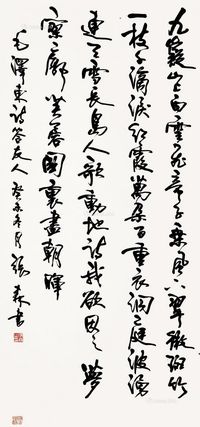 九嶷山上白雲飛帝子乘風下翠微斑竹
一枝千滴淚紅霞萬朵百重衣洞庭波湧
連天雪長島人歌動地詩我欲因之夢
寥廓芙蓉國裏盡朝暉
毛澤東詩答友人癸未冬月張森書